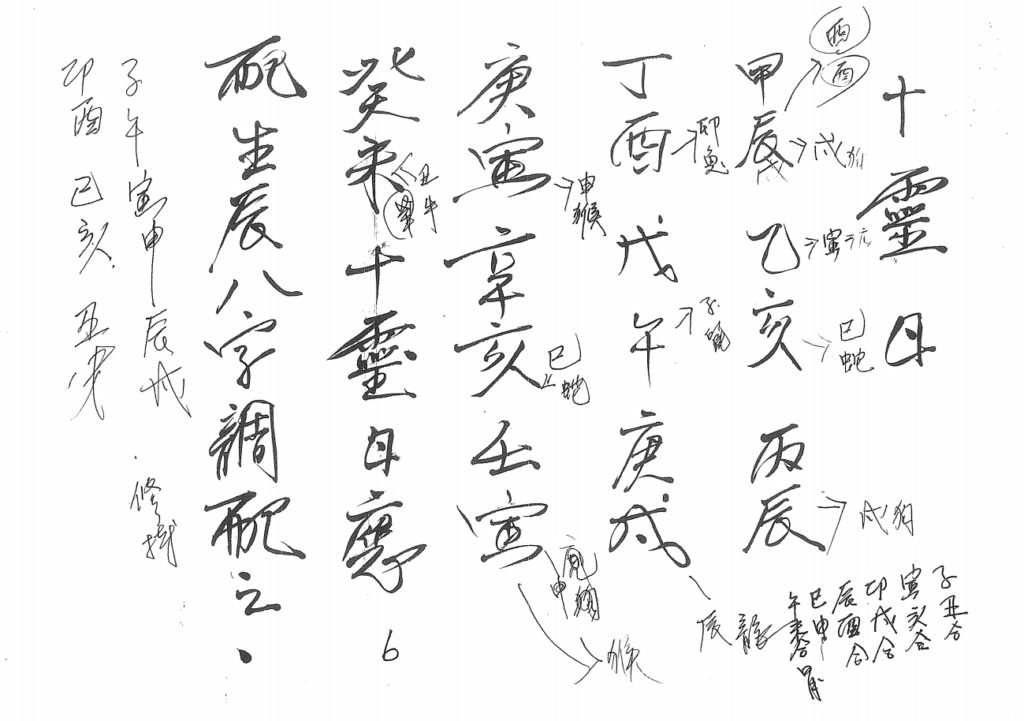 十靈日
甲辰乙亥丙辰
丁酉戊午庚戌
庚寅辛亥壬寅
癸未十靈日應
配生辰八字調配之.
酉
酉
戌狗
寅
巳蛇
戌狗
卯兔
子鼠
辰龍
申猴
巳蛇
申
猴
丑
牛
6
子丑合
寅亥合
卯戌合
辰酉合
巳申
午未合
子午寅申辰戌
卯酉巳亥丑未